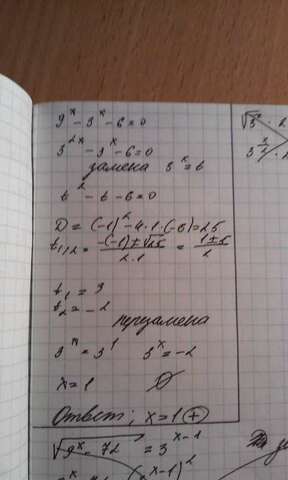 9^x - 3^x - 6 = 0
3^2x - 3^x - 6 = 0
замена 3^x = t
t^2 - t - 6 = 0
D = (-1)^2 - 4·1·(-6) = 25
t1,2 = -(-1) ± √25 / 2·1 = 1 ± 5 / 2
t1 = 3
t2 = -2
перзамена
3^x = 3^1 3^x = -2
x = 1 ∅
Ответ: x = 1 (+)
√9^x - 72 = 3^x-1